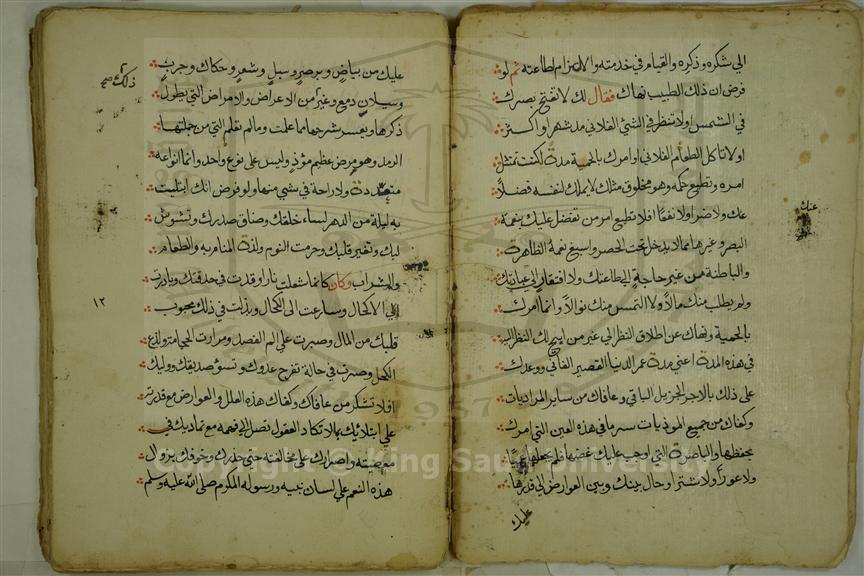 الي شكره وذكره والقيام في خدمته والالتزام لطاعته ثم لو
فرض ان ذلك الطبيب نهاك فقال لك لا تفتح بصرك
في الشمس اولا تنظر في الشئ الفلاني مدة شهر او اكثر
او لا تاكل الطعام الفلاني وامرك بالحمية مدة اكنت تمتثل
امره وتطيع حكمه وهو مخلوق مثلك لا يملك لنفسه فضلاً
عنك ولا ضرا ولا نفعا افلا تطيع امر من تفضل عليك بنعمة
البصر وغيرها مما لا يدخل تحت الحصر واسبغ نعمه الظاهرة
والباطنة من غير حاجة الي طاعتك ولا افتقار الي عبادتك
ولم يطلب منك مالاً ولا التمس منك نوالاً وانما امرك
بالحمية ونهاك عن اطلاق النظر الي غير من ابيح لك النظر اليه
في هذه المدة اعني مدة عمر الدنيا القصير الفاني ووعدك
علي ذلك بالاجر الجزيل الباقي وعافاك من ساير المرديات
وكفاك من جميع الموذيات سرمدا في هذه العين التي امرك
بحفظها والباصرة التي اوجب عليك غضها فلم يجعلها عميا
ولا عورا ولا شترا وحال بينك وبين العوارض التي قدرها
عليك
عنك
عليك من بياض وبرص وسبل وشعر وحكاك وجرب
وسيلان دمع وغير من الاعراض والامراض التي يطول
ذكرها ويعسر شرحها مما علمت ومالم تعلم التي من جملتها
الرمد وهو مرض عظيم مؤذ وليس على نوع واحد وانما انواعه
متعددة ولا راحة في شيي منها ولو فرض انك ابتليت
به ليلة من الدهر لساء خلقك وضاق صدرك وتشوش
لبك وتغير قلبك وحرمت النوم ولذة المنام به والطعام
والشراب وكان كانما شعلت نار اوقدت في حدقتك وبادرت
الي الاكحال وسارعت الي الكحال وبذلت في ذلك محبوب
قلبك من المال وصبرت علي الم الفصد ومرارت الحمامة ولذع
الكحل وصرت في حالة تفرح عدوك وتسؤ صديقك ووليك
افلا تشكر من عافاك وكفاك هذه العلل والعوارض مع قدرته
علي ابتلائك بما لا تكاد العقول تصل الي فهمه مع تماديك في
معصيته واصرارك على مخالفته حتي حذرك وخوفك بزوال
هذه النعم علي لسان نبيه ورسوله المكرم صلي الله عليه وسلم
ذلك صح
١٢
Copyright © King Saud University
1957